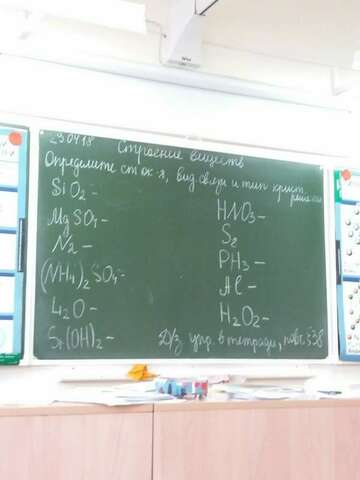 23.04.18 Строение веществ
Определите ст. ок-я, вид связи и тип крист. решетки
SiO2 -
MgSO4 -
N2 -
(NH4)2SO4 -
Li2O -
Sr(OH)2 -
HNO3 -
S8
PH3 -
Al -
H2O2 -
Д/з упр. в тетради, повт. §38